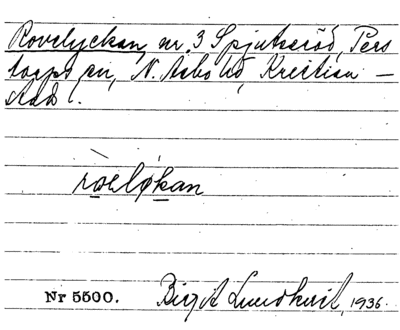 Rovelyckan, nr. 3 Spjutseröd, Pers
torps sn, N. Åsbo hd, Kristian –
stad l.
rơeløkan
Nr 5500. Birgit Lundkvist, 1936.